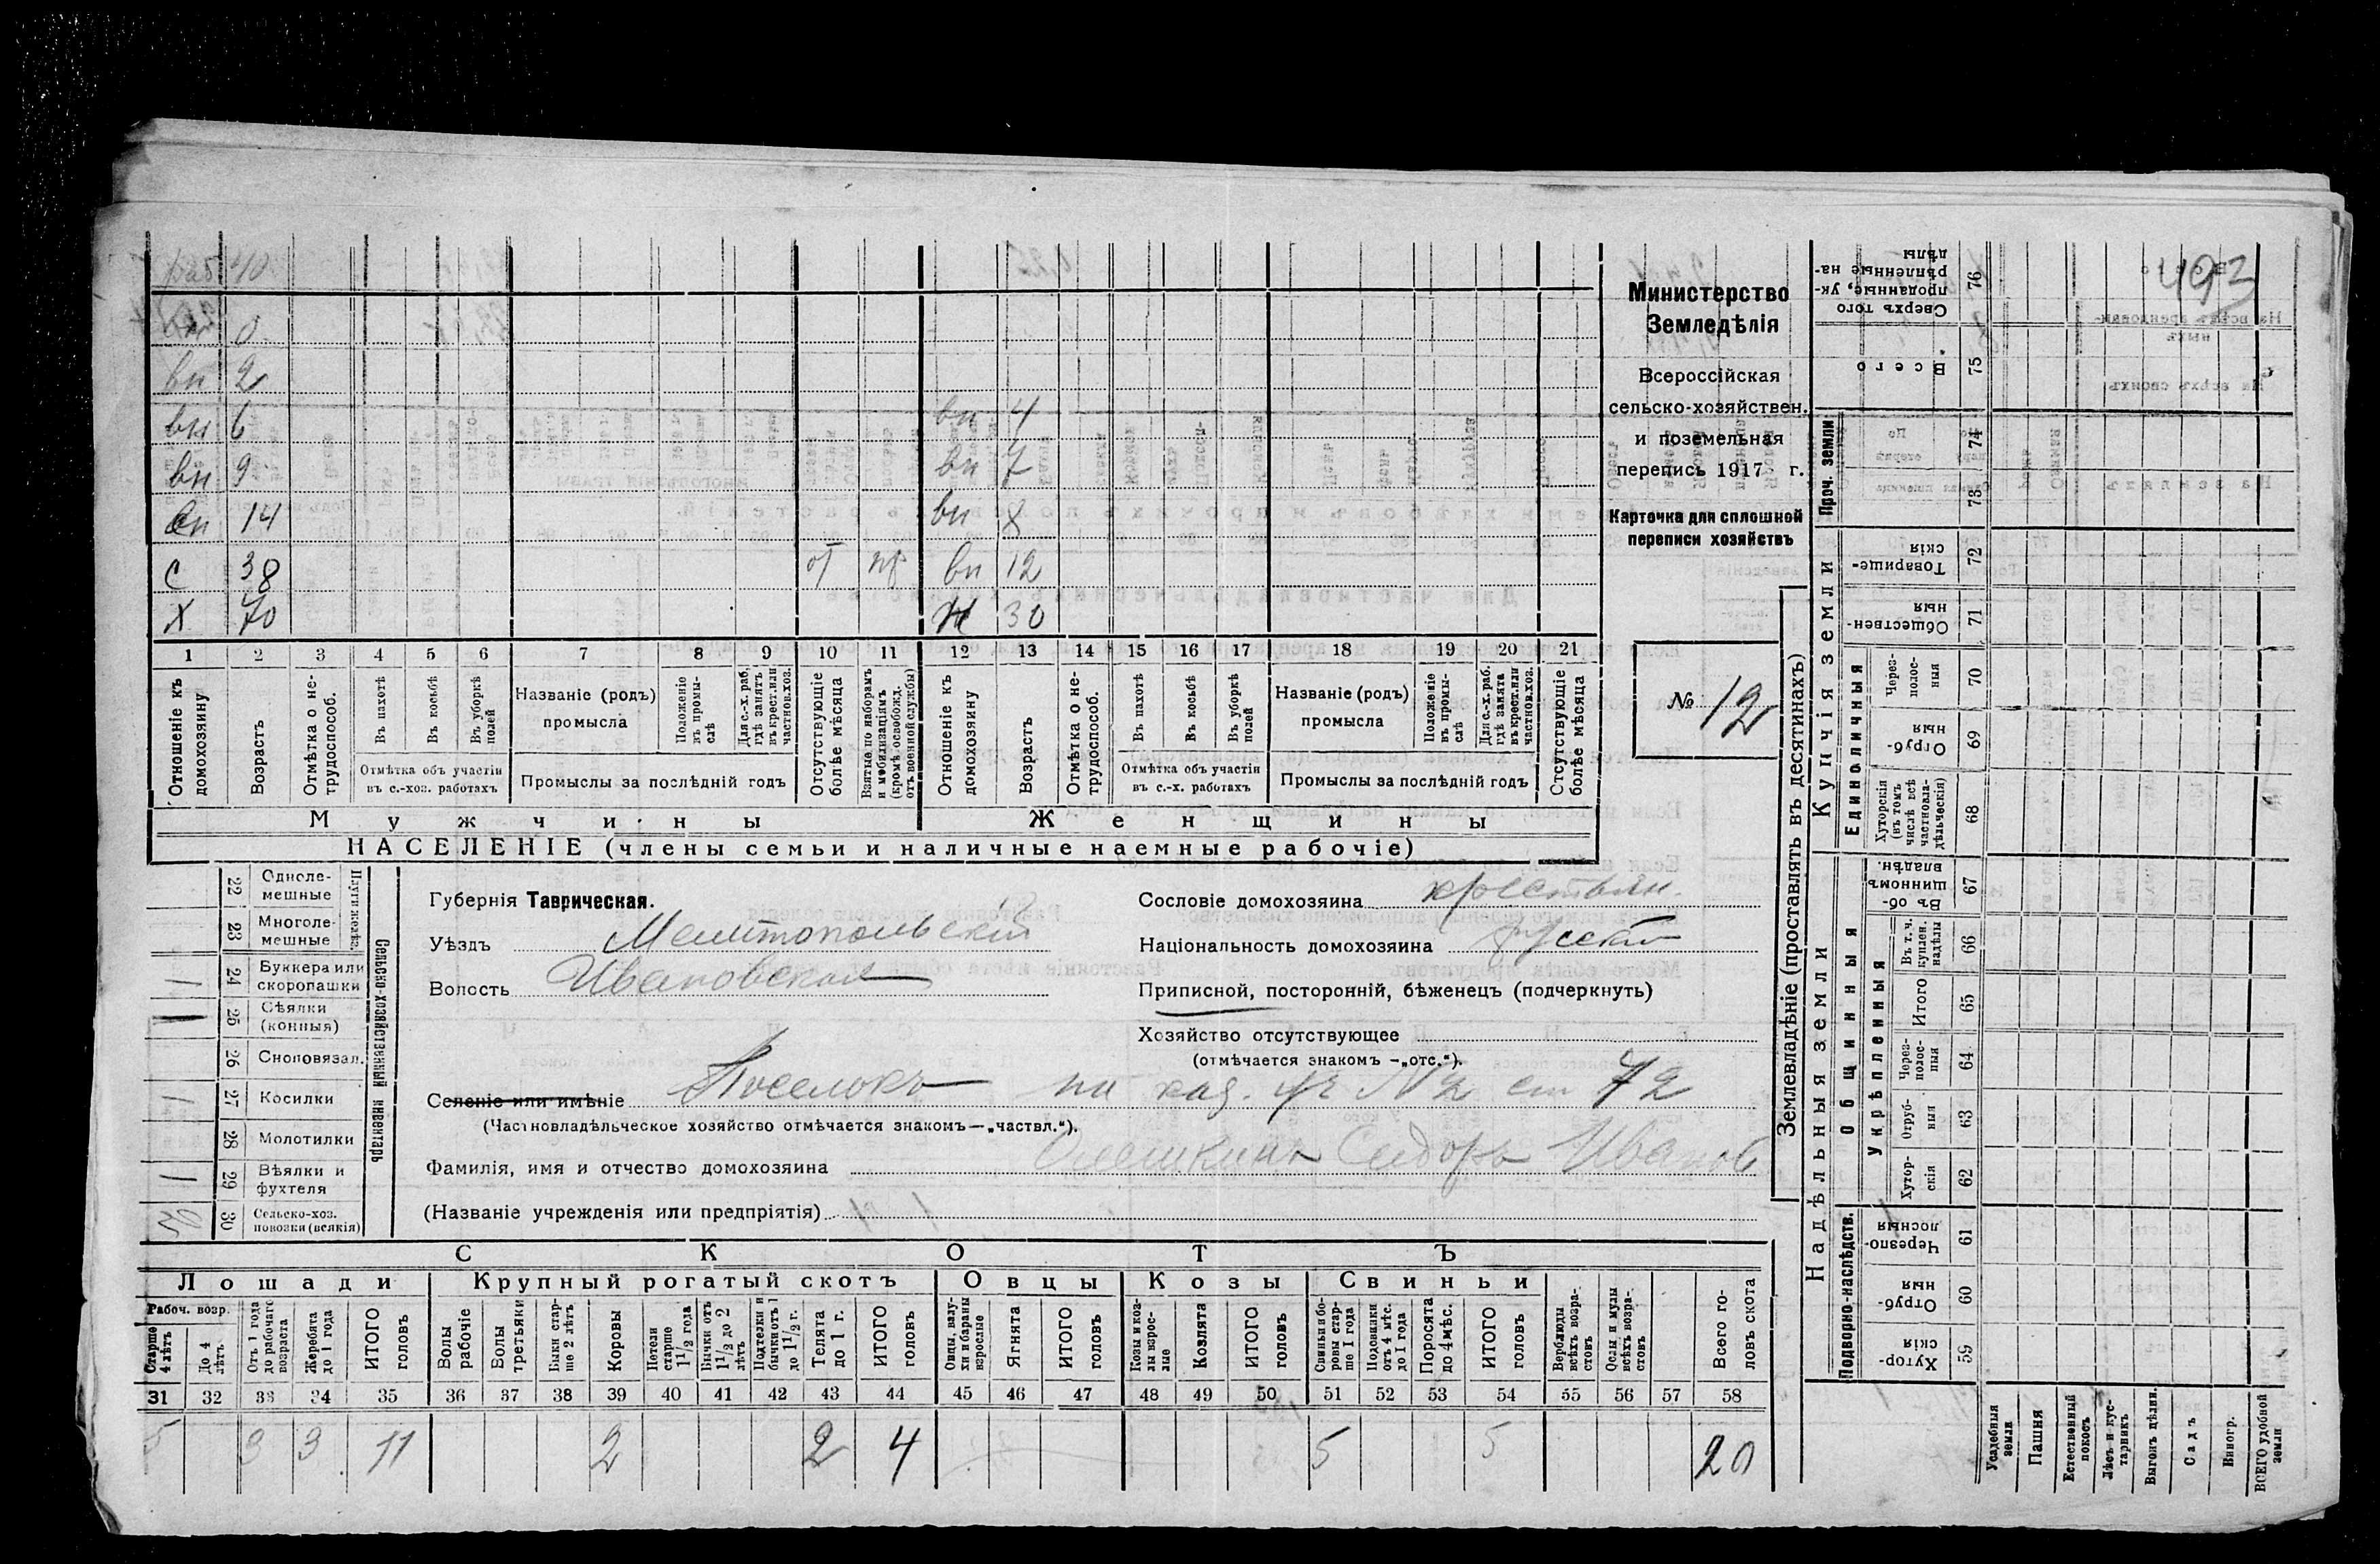 493
Раб. 40
0
вн 2
вн 6 вн 4
вн 9 вн 7
14 вн 8
С 38 от пр вн 12
Х 70 Ж 30
1 2 3 4 5 6 7 8 9 10 11 12 13 14 15 16 17 18 19 20 21
Отношеніе къ домохозяину
Возрастъ
Отмѣтка о не-трудоспособ.
Въ пахотѣ
Въ косьбѣ
Въ уборкѣ полей
Отмѣтка объ участіи въ с.-хоз. работахъ
Названіе (родъ) промысла
Положеніе въ промы-слѣ
Для с.-х. раб. гдѣ занятъ въ крест. или частнов. хоз.
Промыслы за послѣдній годъ
Отсутствующіе болѣе мѣсяца
Взятые по наборамъ и мобилизаціямъ (кромѣ освобожд. отъ военной службы)
Отношеніе къ домохозяину
Возрастъ
Отмѣтка о не-трудоспособ.
Въ пахотѣ
Въ косьбѣ
Въ уборкѣ полей
Отмѣтка объ участіи въ с.-х. работахъ
Названіе (родъ) промысла
Положеніе въ промы-слѣ
Для с.-х. раб. гдѣ занята въ крест. или частнов. хоз.
Промыслы за послѣдній годъ
Отсутствующіе болѣе мѣсяца
Мужчины Женщины
НАСЕЛЕНІЕ (члены семьи и наличные наемные рабочіе)
Министерство
Земледѣлія
Всероссійская
сельско-хозяйствен.
и поземельная
перепись 1917 г.
Карточка для сплошной
переписи хозяйствъ
№ 12
22 Одноле-мешные
23 Многоле-мешные
Плуги желѣз.
24 Буккера или скоропашки 1
25 Сѣялки (конныя) 1
26 Сноповязал.
27 Косилки 1
28 Молотилки
29 Вѣялки и фухтеля 1
30 Сельско-хоз. повозки (всякія)
Сельско-хозяйственный инвентарь
Губернія Таврическая.
Уѣздъ Мелитопольскій
Волость Ивановская
Сословіе домохозяина крестьян.
Національность домохозяина русскій
Приписной, посторонній, бѣженецъ (подчеркнуть)
Хозяйство отсутствующее
(отмѣчается знакомъ —„отс.“).
Селеніе или имѣніе Поселокъ на каз. уч №2 ст 72
(Частновладѣльческое хозяйство отмѣчается знакомъ—„частвл.“).
Фамилія, имя и отчество домохозяина Олешкинъ Сидоръ Иванов
(Названіе учрежденія или предпріятія)
СКОТЪ
Лошади Крупный рогатый скотъ Овцы Козы Свиньи
Рабоч. возр.
Старше 4 лѣтъ
До 4 лѣтъ.
Отъ 1 года до рабочаго возраста
Жеребята до 1 года
ИТОГО головъ
Волы рабочіе
Волы третьяки
Быки стар-ше 2 лѣтъ
Коровы
Нетели старше 1½ года
Бычки отъ 1½ до 2 лѣтъ
Подтелки и бычки отъ 1 до 1½ г.
Телята до 1 г.
ИТОГО головъ
Овцы, валу-хи и бараны взрослые
Ягнята
ИТОГО головъ
Козы и коз-лы взрос-лые
Козлята
ИТОГО головъ
Свиньи и бо-ровы стар-ше 1 года
Подсвинки отъ 4 мѣс. до 1 года
Поросята до 4 мѣс.
ИТОГО головъ
Верблюды всѣхъ возра-стовъ
Ослы и мулы всѣхъ возра-стовъ
Всего го-ловъ скота
31 32 33 34 35 36 37 38 39 40 41 42 43 44 45 46 47 48 49 50 51 52 53 54 55 56 57 58
5 3 3 11 2 2 4 5 5 20
Землевладѣніе (проставлять въ десятинахъ)
Купчія земли
Надѣльныя земли
Сверхъ того проданные, ук-рѣпленные на-дѣлы 76
Всего 75
Проч. земли 74 73
Товарище-скія 72
Обществен-ныя 71
Единоличныя
Через-полос-ныя 70
Отруб-ныя 69
Хуторскія (въ томъ числѣ всѣ частновла-дѣльческія) 68
Общинныя
Въ об-щинномъ владѣн. 67
Укрѣпленныя
Въ т. ч. куплен. надѣлы 66
Итого 65
Через-полос-ныя 64
Отруб-ныя 63
Хутор-скія 62
Подворно-наслѣдств.
Черезпо-лосныя 61
Отруб-ныя 60
Хутор-скія 59
Усадебныя земли
Пашня
Естественный покосъ
Лѣсъ и кус-тарникъ
Выгонъ цѣлин.
Садъ
Виногр.
ВСЕГО удобной земли